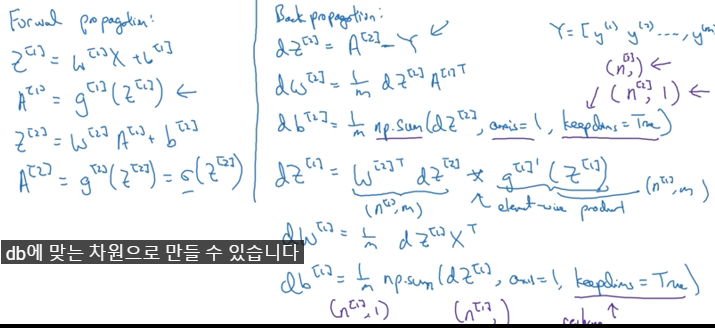 Forward propagation:
Z^[1] = W^[1]X + b^[1]
A^[1] = g^[1](Z^[1]) ←
Z^[2] = W^[2] A^[1] + b^[2]
A^[2] = g^[2](Z^[2]) = σ(Z^[2])
Back propagation:
dZ^[2] = A^[2] - Y
dW^[2] = 1/m dZ^[2] A^[1]T
db^[2] = 1/m np.sum(dZ^[2], axis=1, keepdims=True)
dZ^[1] = W^[2]T dZ^[2] * g^[1]'(Z^[1])
(n^[1],m) element-wise product (n^[1],m)
dW^[1] = 1/m dZ^[1] X^T
db^[1] = 1/m np.sum(dZ^[1], axis=1, keepdims=True)
(n^[1],1) (n^[1],)
Y = [y^(1) y^(2) ...., y^(m)
(n^[2],) ←
(n^[2], 1) ←
db에 맞는 차원으로 만들 수 있습니다